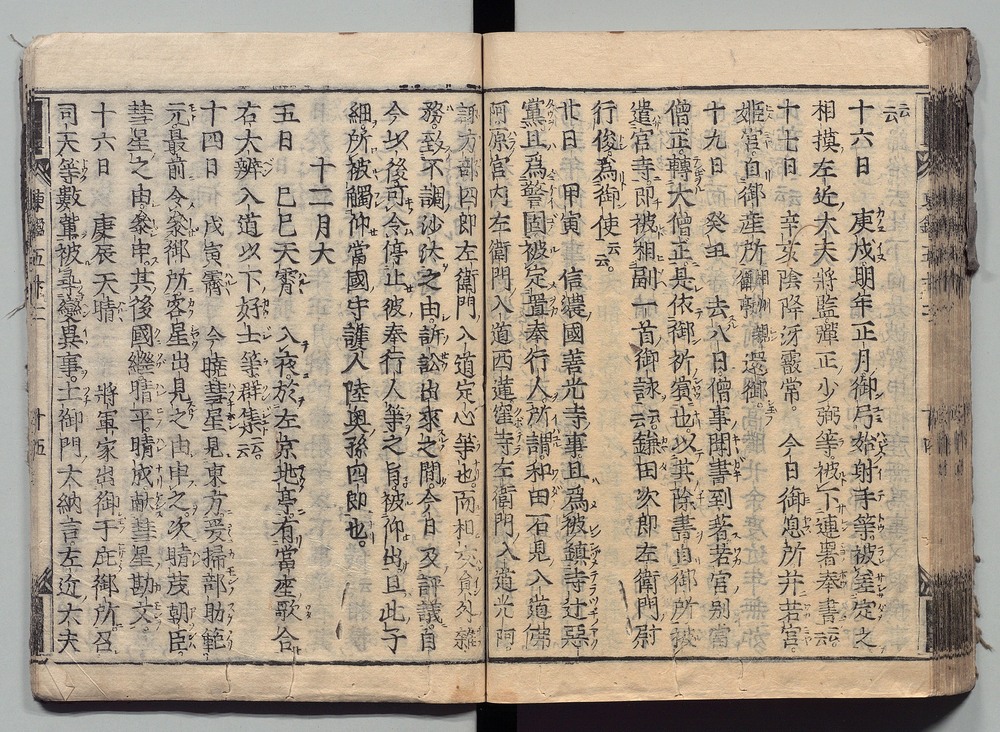 云云
十六日　庚戌明年正月御弓始射手等被差定之
相摸左近大夫將監彈正少弼等被下連署奉書云云
十七日　辛亥陰降冴霰常。　今日御息所并若宮。
姫宮自御産所　還御。
十九日　癸丑　去八日僧事聞書到著若宮別當
僧正轉大僧正是依御祈賞也以其除書自御所被
遣宮寺即被相副一首御詠云云鎌田次郎左衛門尉
行俊為御使云云。
廿日　甲寅　信濃國善光寺事且為被鎮寺辻惡
黨且為警固被定置奉行人所謂和田石見入道佛
阿原宮内左衛門入道西蓮窪寺左衛門入道光阿
諏方部四郎左衛門入道定心等也而相交員外雜
務致不調沙汰之由訴訟出來之間今日及評議自
今以後可令停止彼奉行人等之旨被仰出且此子
細所被觸仰當國守護人陸奥孫四郎也。
十二月大
五日　己巳天霽　入夜於左京地亭有當座歌合
右大辨入道以下好士等群集云云
十四日　戊寅霽　今曉彗星見東方爰掃部助範
元最前令參御所客星出見之由申之次晴茂朝臣。
彗星之由參申其後國繼晴平晴成獻彗星勘文。
十六日　庚辰天晴　將軍家出御于庇御所召
司天等數輩被　變異事。土御門大納言左近大夫